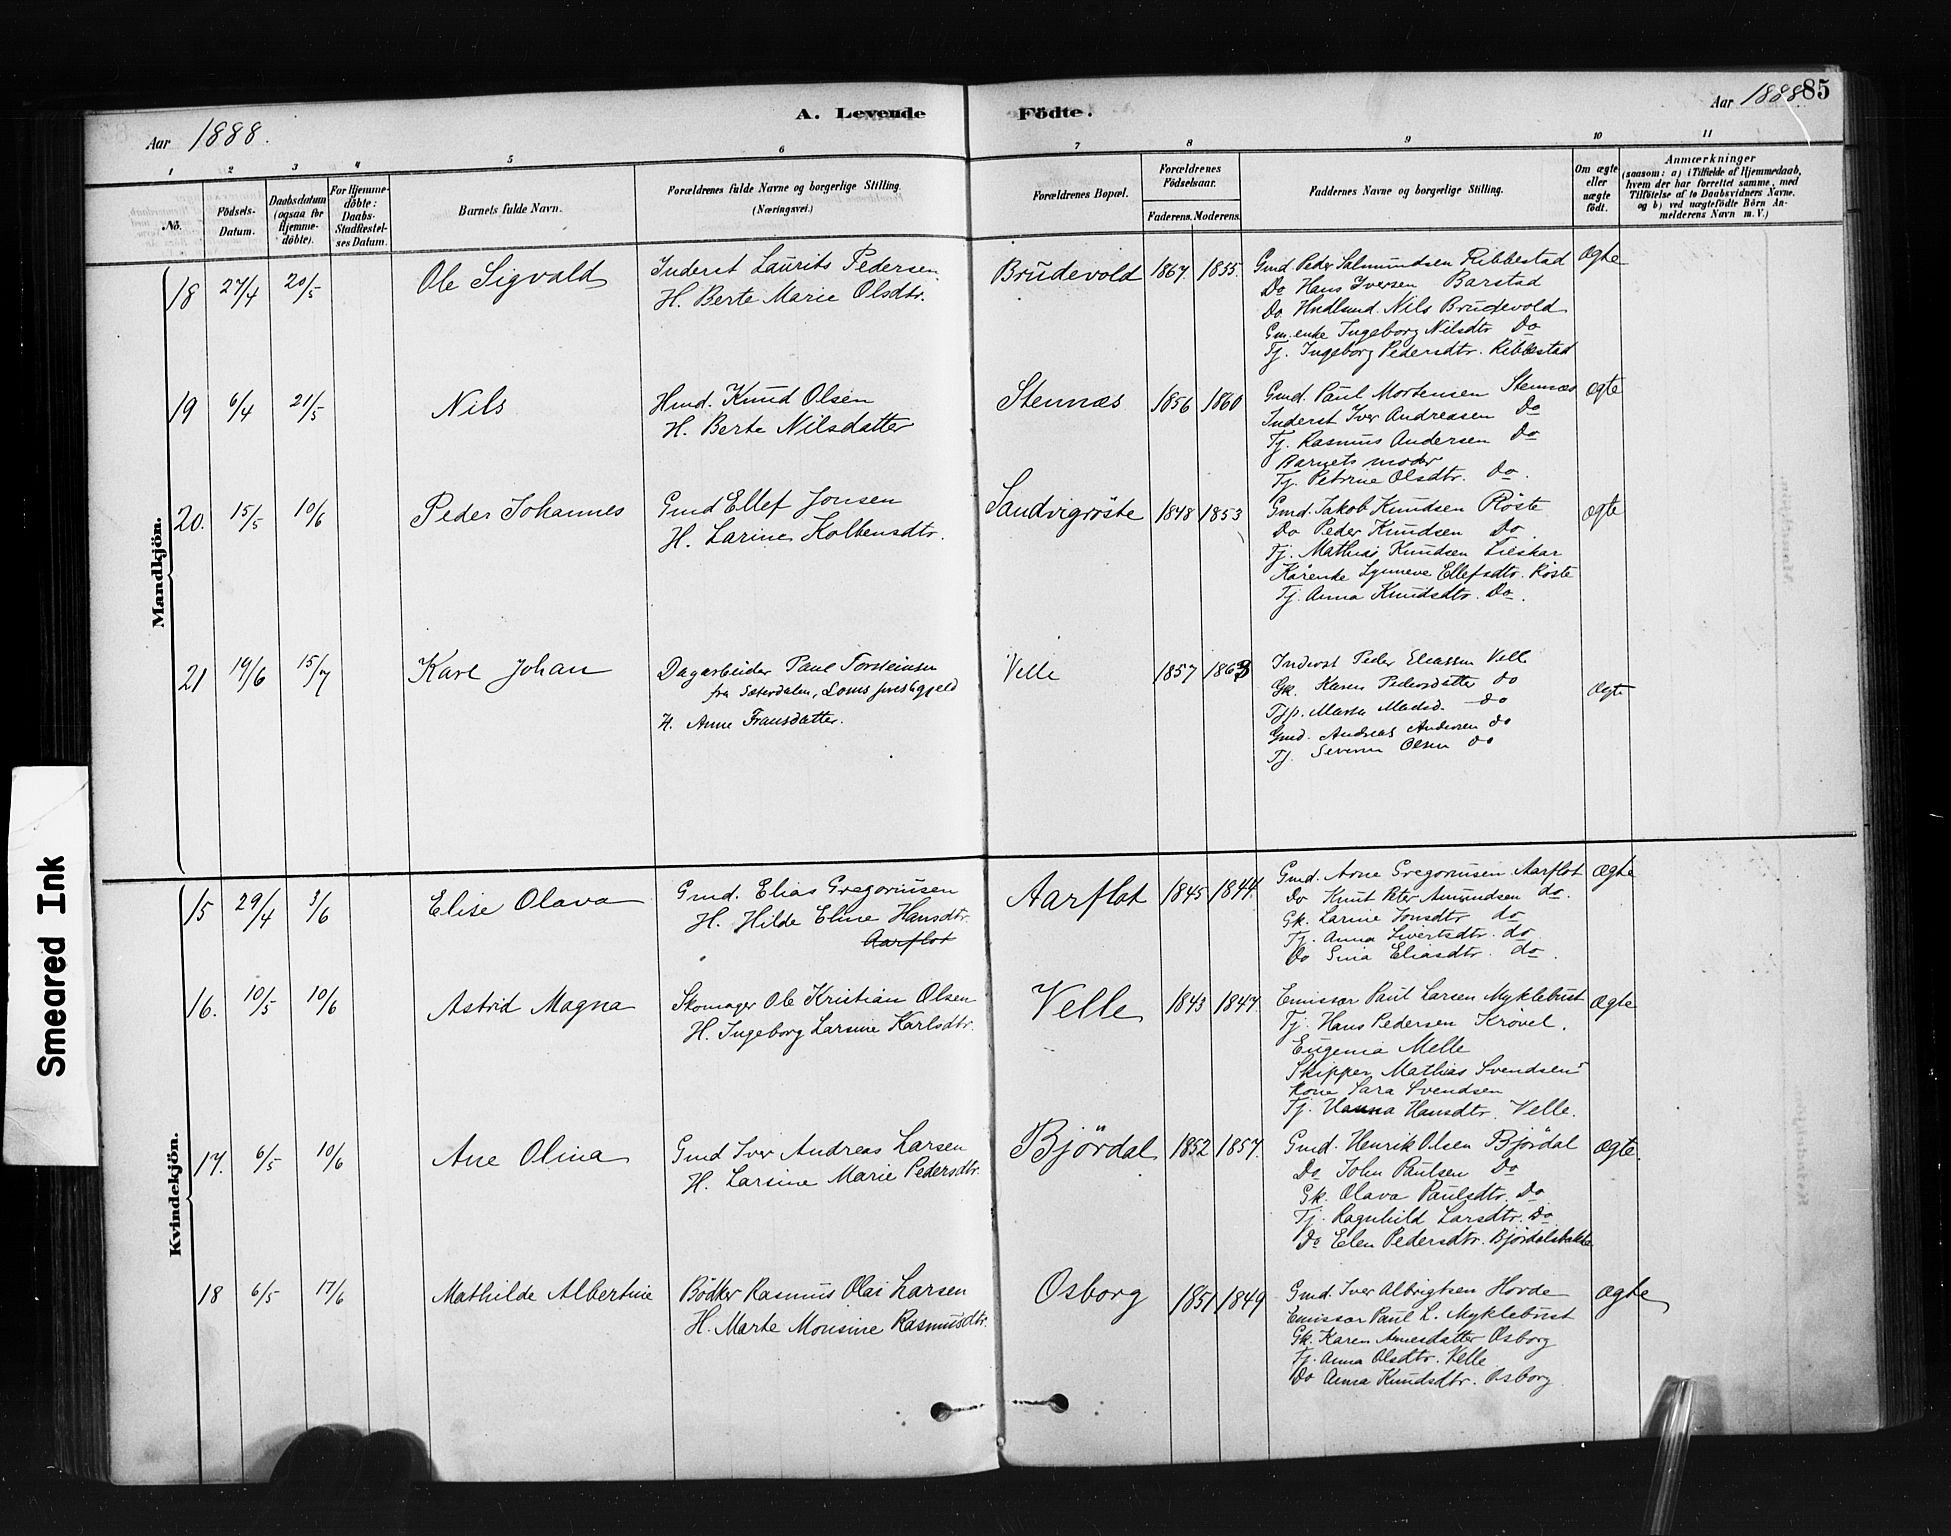 A. Levende Födte.
Aar 1888.
Aar 1888. 85
1 2 3 4 5 6 7 8 9 10 11
No.
Födsels-Datum.
Daabsdatum (ogsaa for Hjemme-döbte).
For Hjemme-döbte: Daabs-Stadfæstel-ses Datum.
Barnets fulde Navn.
Forældrenes fulde Navne og borgerlige Stilling. (Næringsvei.)
Forældrenes Bopæl.
Forældrenes Födselsaar.
Faderens. Moderens.
Faddernes Navne og borgerlige Stilling.
Om ægte eller uægte födt.
Anmærkninger (saasom: a) i Tilfælde af Hjemmedaab, hvem der har forrettet samme, med Tilföielse af to Daabsvidners Navne, og b) ved uægtefödte Börn An-melderens Navn m. V.)
Mandkjön.
18 27/4 20/5 Ole Sigvald Inderst Laurits Pedersen Brudevold 1867. 1855. Gmd Peder Salmundsen Ribbestad Ægte
H. Berte Marie Olsdtr. Do Hans Iversen Barstad
Do. Nils Brudevold
Gm.enke Ingeborg Nilsdtr Do
Tj. Ingeborg Pedersdtr. Ribbestad
19 6/4 21/5 Nils Hmd. Knud Olsen Stennæs 1856 1860 Gmd. Paul Mortensen Stennæs ægte
H. Berte Nilsdatter Inderst Iver Andreasen Do
Tj. Rasmus Andersen Do
Barnets moder
Tj. Petrine Olsdtr. Do.
20. 15/5 10/6 Peder Johannes Gmd Ellef Jonsen Sandvigröste 1848 1853 Gmd. Jakob Knudsen Röste ægte
H. Larine Kolbensdtr. Do Peder Knudsen Do.
Tj. Mathias Knudsen Lieskar
Kårenke Synneve Ellefsdtr. Röste
Tj. Anna Knudsdtr. Do.
21 19/6 15/7 Karl Johan Dagarbeider Paul Torsteinsen Velle 1857 1863 Inderst Peder Eliassen Velle ægte
fra Sæterdalen, Loms præstegjeld Gk. Karen Pedersdatter do
H. Anne Fransdatter. Tjp. Marta Madsd. do
Gmd. Andreas Andersen do
Tj. Severin Olsen do
Kvindekjön.
15 29/4 3/6 Elise Olava Gmd. Elias Gregoriusen Aarflot 1845 1844. Gmd. Arne Gregoriusen Aarflot Ægte
H. Hilde Eline Hansdtr. Do Knut Peter Amundsen do.
Aarflot Gk. Larine Jonsdtr do
Tj. Anna Sivertsdtr. do
Do Sina Eliasdtr. do.
16. 10/5 10/6 Astrid Magna Skomager Ole Kristian Olsen Velle 1843 1847. Emissær Paul Larsen Myklebust Ægte
H. Ingeborg Larsine Karlsdtr. Tj. Hans Pedersen Krövel.
Eugenia Melle
Skipper Mathias Svendsens
kone Sara Svendsen
Tj. Hanna Hansdtr. Velle.
17. 6/5 10/6 Ane Olina Gmd Iver Andreas Larsen Björdal 1852 1857. Gmd. Henrik Olsen Björdal ægte.
H. Larsine Marie Pedersdtr. Do John Paulsen Do
Gk. Olava Paulsdtr. Do
Tj. Ragnhild Larsdtr. Do
Do Elen Pedersdtr. Björdalsbakke
18 6/5 17/6 Mathilde Albertine Bödker Rasmus Olai Larsen Osborg 1851 1849 Gmd. Iver Albrigtsen Hovde ægte
H. Marte Monsine Rasmusdtr. Emissær Paul L. Myklebust
Gk. Karen Arnesdatter Osborg
Tj. Anna Olsdtr. Velle
Do Anna Knudsdtr. Osborg
Smeared Ink